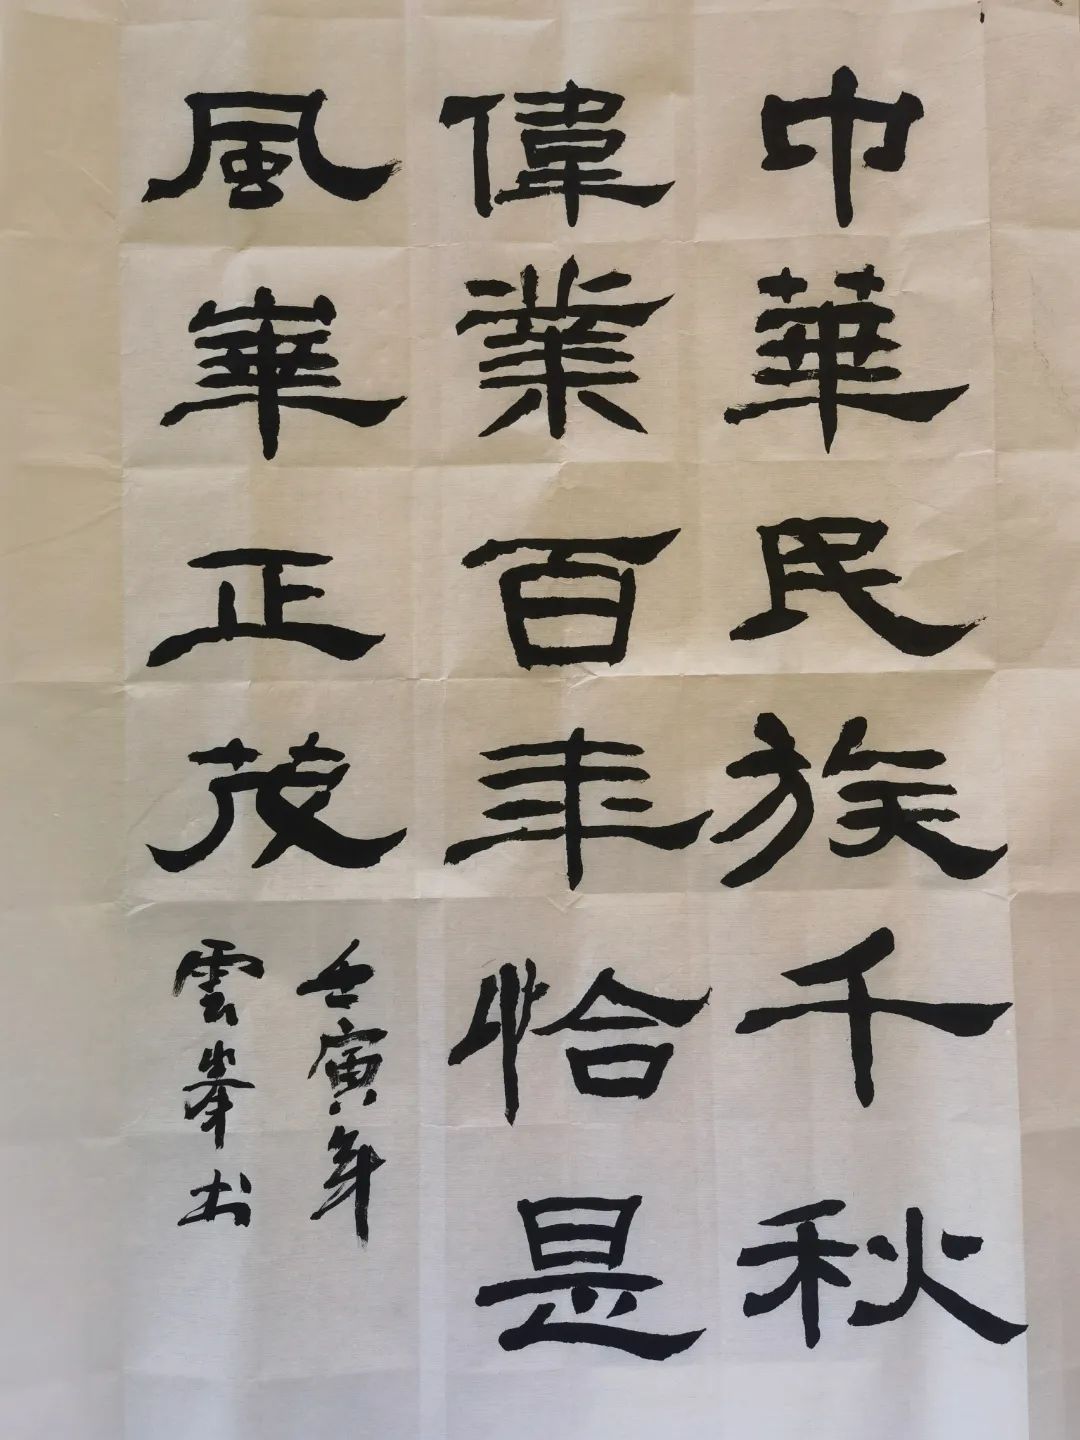 中華民族千秋
偉業百年恰是
風華正茂
壬寅年
雲峯书